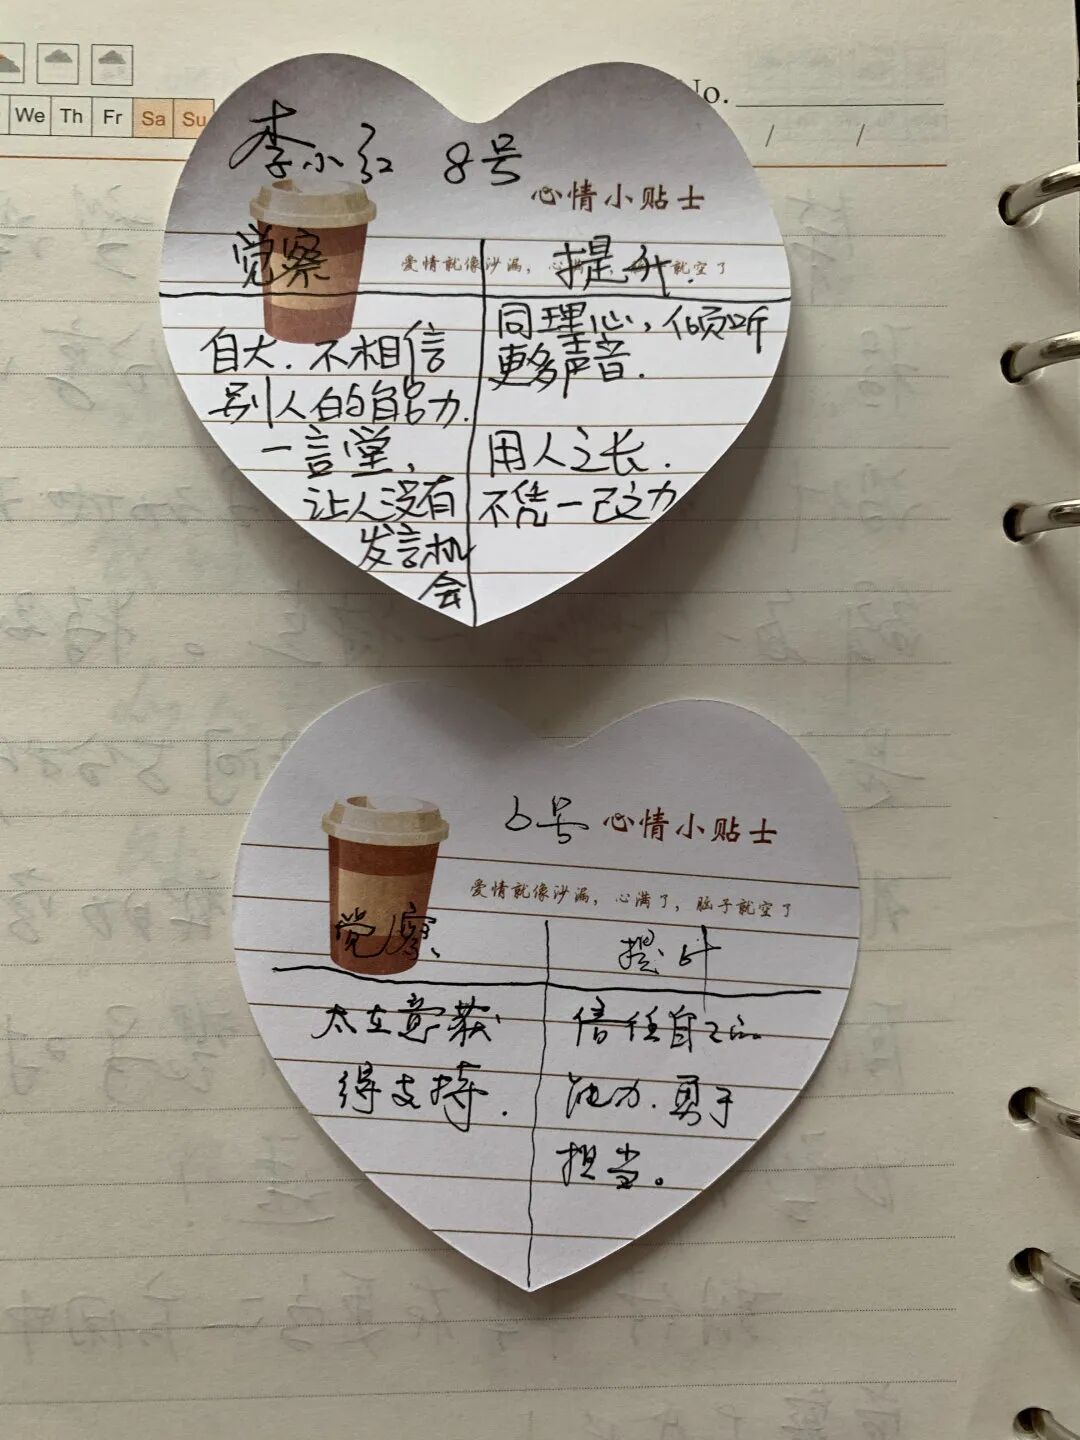 We Th Fr Sa Su
No.
/ /
李小红 8号
心情小贴士
爱情就像沙漏，心满 就空了
觉察
提升.
自大.不相信
别人的能力.
一言堂，
让人没有
发言机
会
同理心，倾听
更多声音.
用人之长.
不凭一己之力
6号
心情小贴士
爱情就像沙漏，心满了，脑子就空了
觉察、
提升
太在意获
得支持.
信任自己的
能力.勇于
担当。